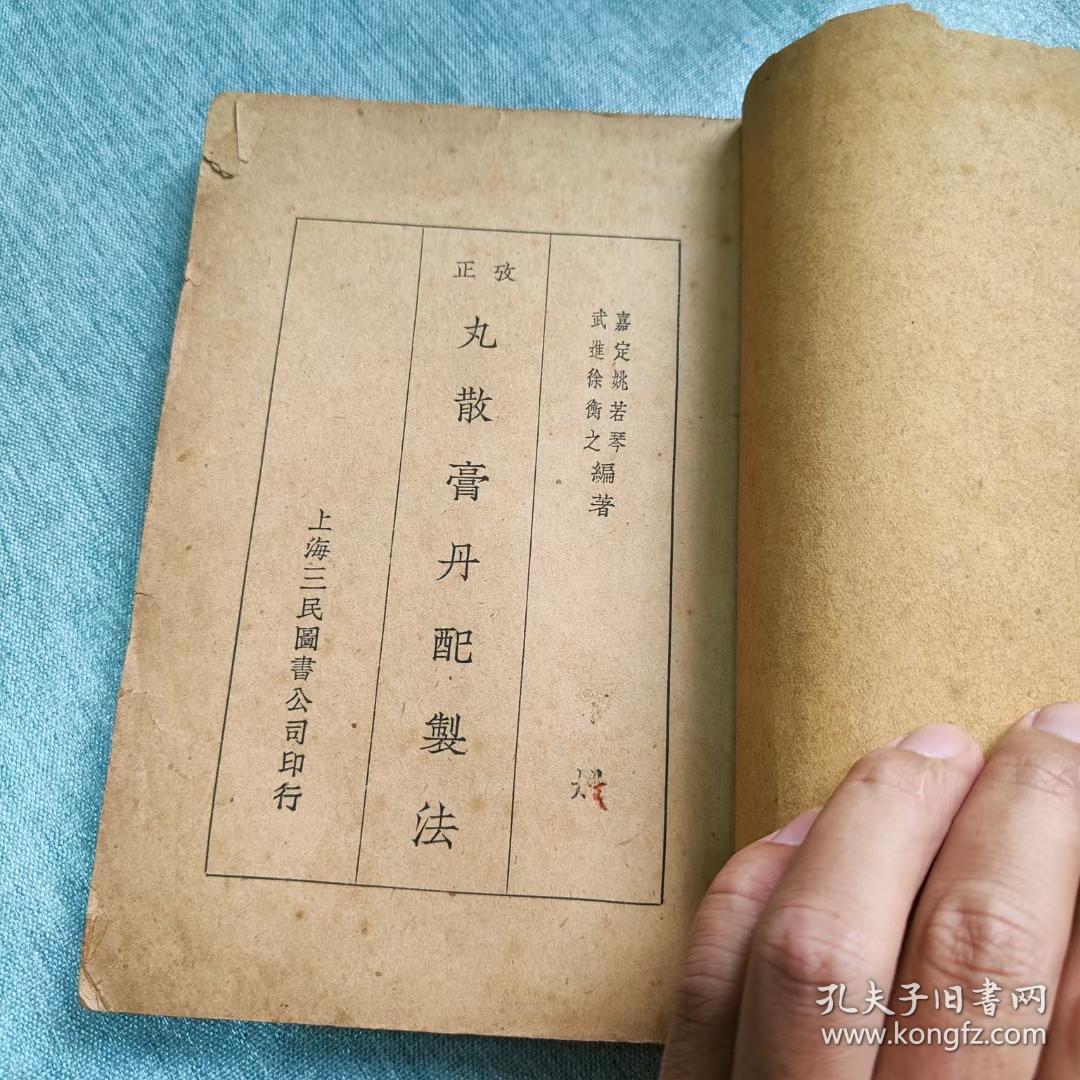 嘉定姚若琴
武進徐衡之
編著
攷正
丸散膏丹配製法
上海三民圖書公司印行
孔夫子旧書网
www.kongfz.com